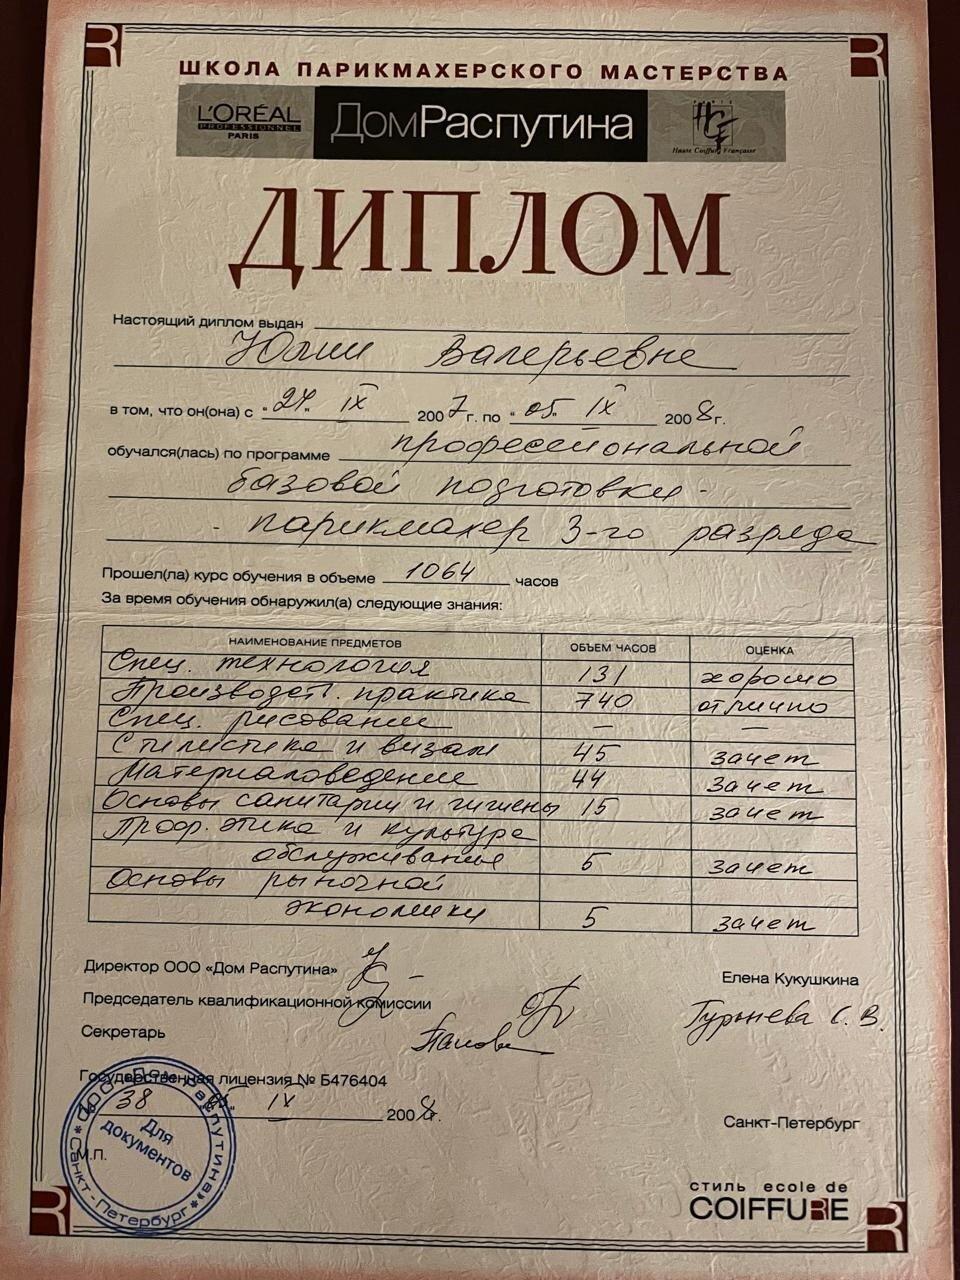 ШКОЛА ПАРИКМАХЕРСКОГО МАСТЕРСТВА
L'ORÉAL
PROFESSIONNEL
PARIS
ДомРаспутина
HCF
Haute Coiffure Française
ДИПЛОМ
Настоящий диплом выдан
Юлии Валерьевне
в том, что он(она) с "24" IX 2007г. по "05" IX 2008г.
обучался(лась) по программе профессиональной
базовой подготовки -
- парикмахер 3-го разряда
Прошел(ла) курс обучения в объеме 1064 часов
За время обучения обнаружил(а) следующие знания:
НАИМЕНОВАНИЕ ПРЕДМЕТОВ ОБЪЕМ ЧАСОВ ОЦЕНКА
Спец. технология 131 хорошо
Производств. практика 740 отлично
Спец. рисование — —
Стилистика и визаж 45 зачет
Материаловедение 44 зачет
Основы санитарии и гигиены 15 зачет
Проф. этика и культура
обслуживания 5 зачет
Основы рыночной
экономики 5 зачет
Директор ООО «Дом Распутина» Елена Кукушкина
Председатель квалификационной комиссии Гурьнева С. В.
Секретарь Панова
Государственная лицензия № Б476404
38 "05" IX 2008г.
Санкт-Петербург
М.П.
ООО «Дом Распутина» * Санкт-Петербург *
Для
документов
стиль ecole de
COIFFURE